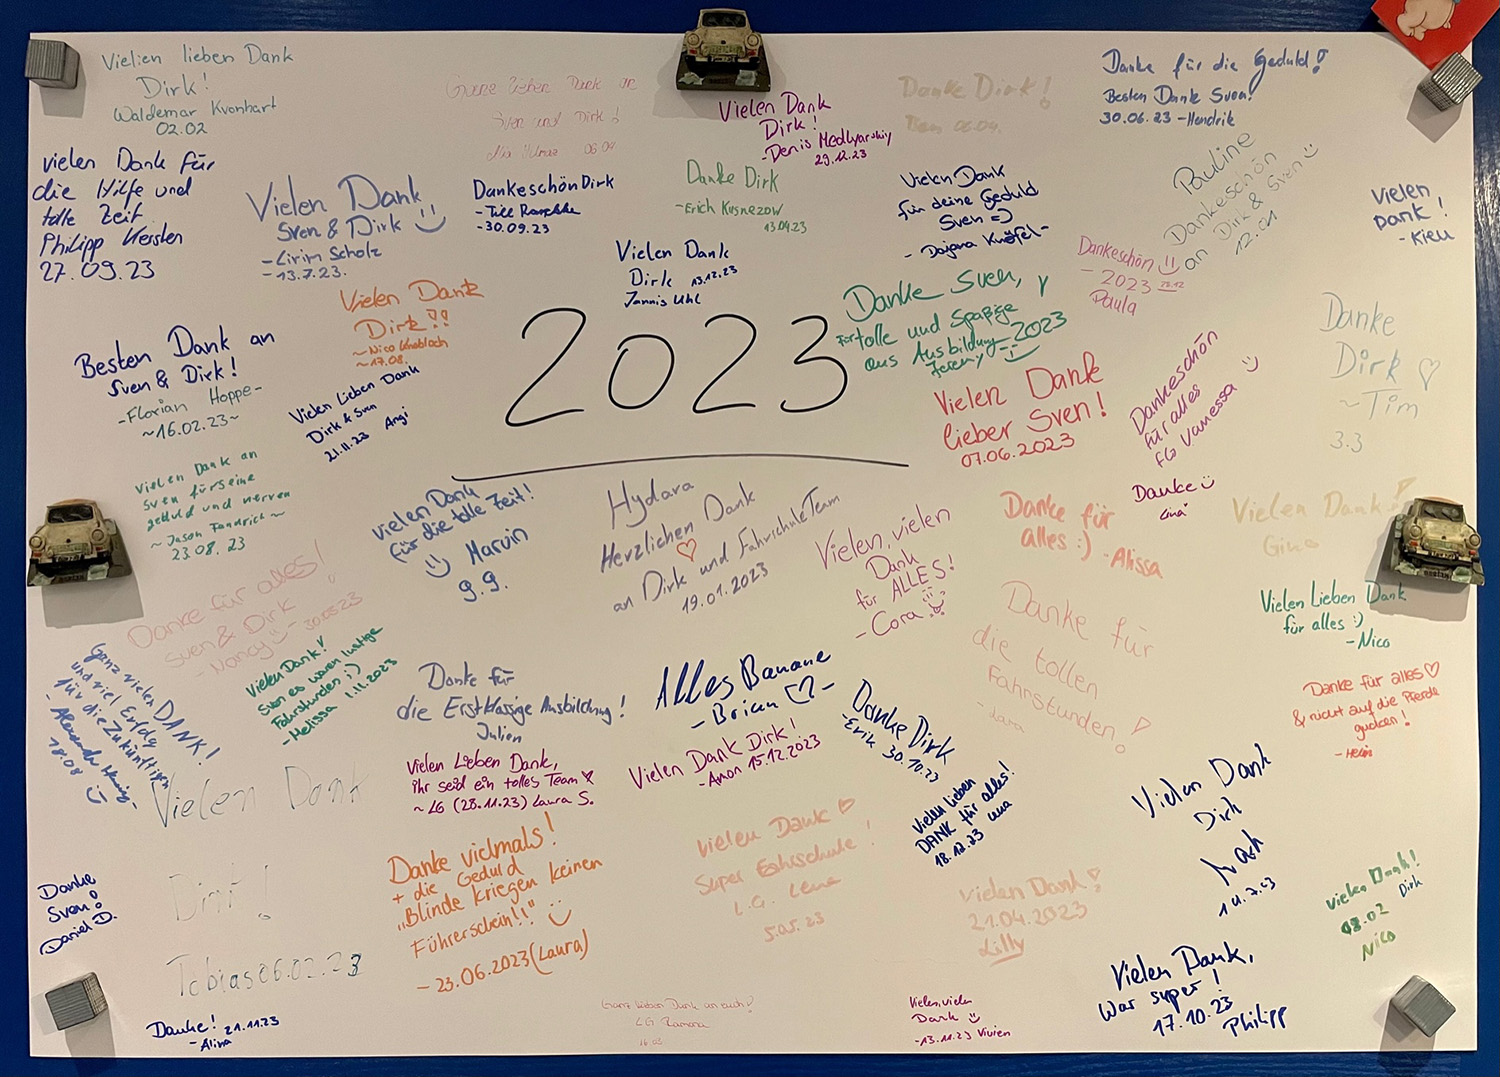 Vielien lieben Dank
Dirk!
Waldemar Kvonhart
02.02
Ganz lieben Dank an
Sven und Dirk!
06.04
Vielen Dank
Dirk!
-Denis Medlyarskiy
29.12.23
Danke Dirk!
06.04.
Danke für die Geduld!
Besten Dank Sven!
30.06.23 -Hendrik
vielen Dank für
die Hilfe und
tolle Zeit
Philipp Kersten
27.09.23
Vielen Dank
Sven & Dirk
-Lirim Scholz
-13.7.23.
Dankeschön Dirk
-Till
-30.09.23
Danke Dirk
-Erich Kusnezow
13.04.23
Vielen Dank
für deine Geduld
Sven =)
- Dajana Knöfel-
Pauline
Dankeschön
an Dirk & Sven
12.01
Vielen
Dank!
- Kieu
Vielen Dank
Dirk 13.12.23
Jannis Uhl
Dankeschön
- 2023
Paula
Vielen Dank
Dirk!!
~Nico Knobloch
~17.08.
2023
Danke Sven,
für tolle und Spaßige
aus Ausbildung 2023
Jeremy
Danke
Dirk ♡
~Tim
3.3
Besten Dank an
Sven & Dirk!
-Florian Hoppe-
~16.02.23~
Vielen Lieben Dank
Dirk & Sven
21.11.23 Angi
Vielen Dank
lieber Sven!
07.06.2023
Dankeschön
für alles
LG Vanessa
Vielen Dank an
Sven für seine
geduld und nerven
~ Jason Fandrich ~
23.08.23
vielen Dank
für die tolle Zeit!
Marvin
9.9.
Hydara
Herzlichen Dank
♡
an Dirk und Fahrschule Team
19.01.2023
Vielen, vielen
Dank
für ALLES!
- Cora
Danke für
alles :) -Alissa
Danke
Lina
Vielen Dank!
Gina
Danke für alles!
Sven & Dirk
- Nancy - 30.03.23
Vielen Dank!
Sven es waren lustige
Fahrstunden ;)
- Melissa 1.11.2023
Danke für
die tollen
Fahrstunden!
- Lara
Vielen Lieben Dank
für alles :)
-Nico
Ganz vielen DANK!
und viel Erfolg
für die Zukünftigen
- Alexander
18.08
Danke für
die Erstklassige Ausbildung!
Julien
Alles Banane
- Brian ♡ -
Danke Dirk
-Erik 30.10.23
Danke für alles♡
& nicht auf die Pferde
gucken!
Vielen Dank
Dirk!
Tobias 06.02.23
Vielen Lieben Dank,
ihr seid ein tolles Team ♡
~ LG (28.11.23) Laura S.
Vielen Dank Dirk!
-Amon 15.12.2023
Vielen lieben
DANK für alles!
18.12.23 Lena
Vielen Dank
Dirk
14.7.23
Danke
Sven!
Daniel D.
Danke vielmals!
+ die Geduld
„Blinde kriegen keinen
Führerschein!!"
- 23.06.2023 (Laura)
Vielen Dank ♡
Super Fahrschule!
L.G. Lena
5.05.23
Vielen Dank!
21.04.2023
Lilly
Vielen Dank!
Dirk
08.02
Nico
Vielen Dank,
War super!
17.10.23
Philipp
Danke! 21.11.23
-Alina
Ganz lieben Dank an euch!
LG Ramona
16.03
Vielen, vielen
Dank
-13.11.23 Vivien